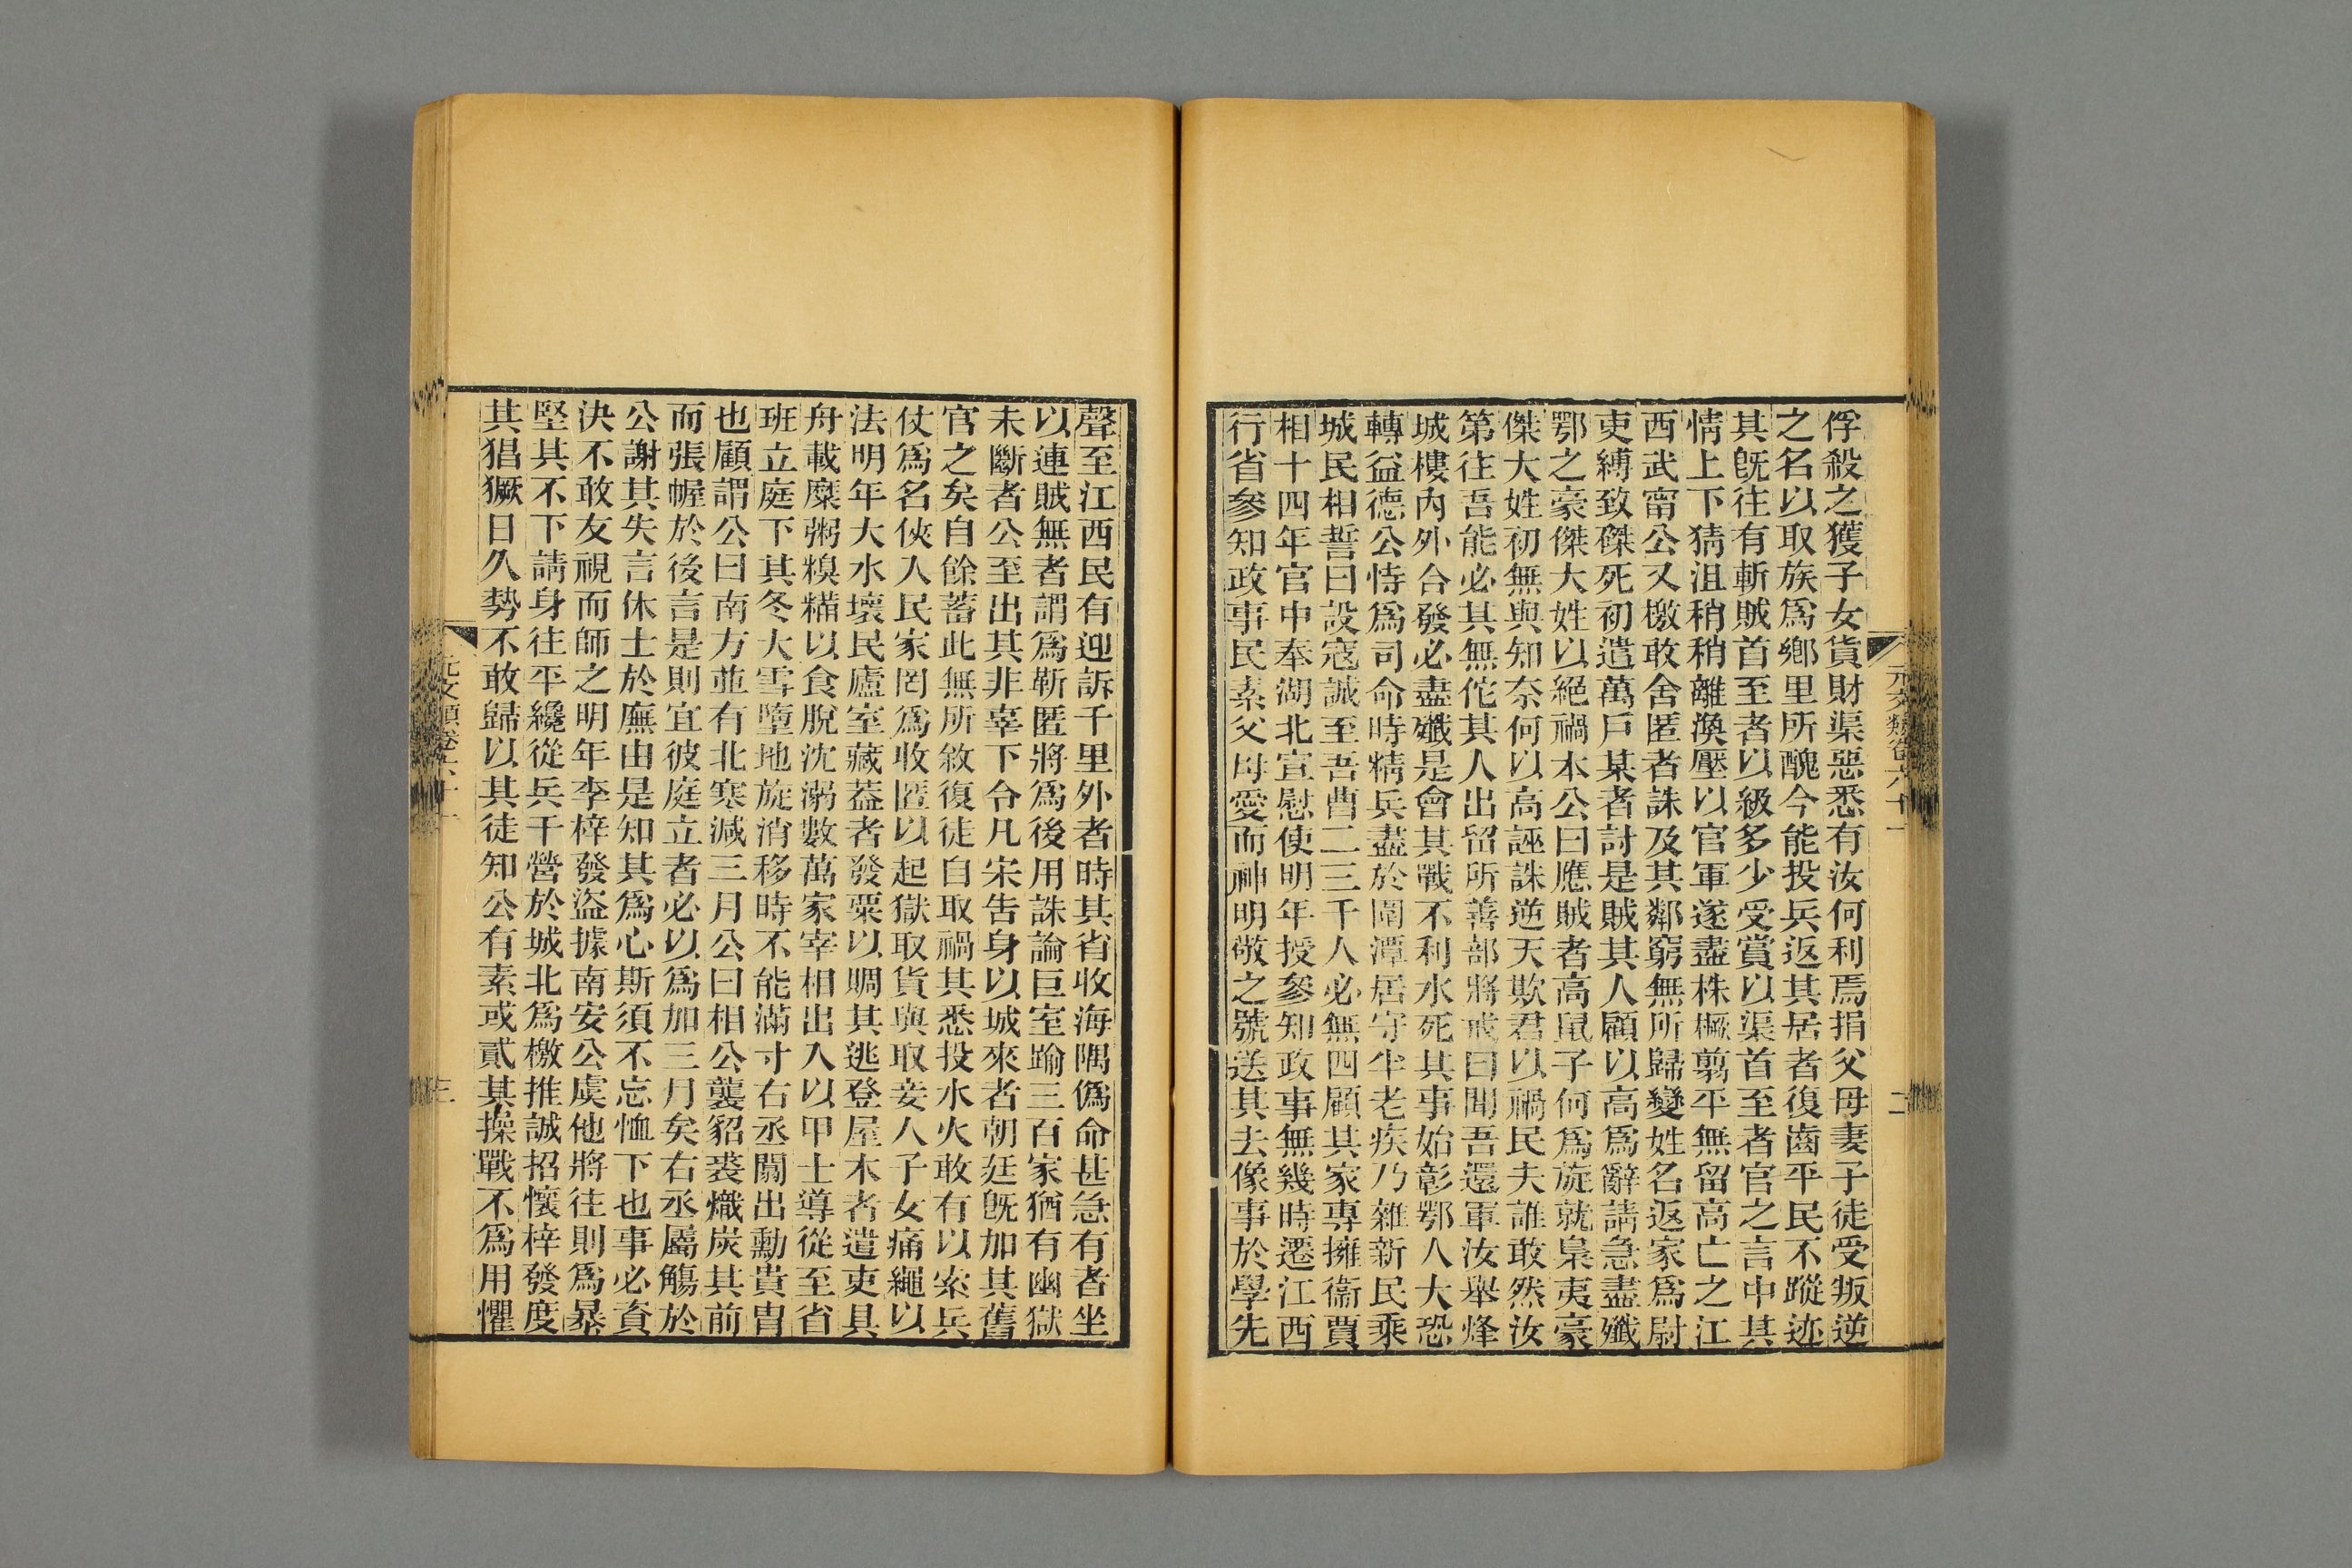 俘殺之獲子女貨財渠惡悉有汝何利焉捐父母妻子徒受叛逆
之名以取族爲鄉里所醜今能投兵返其居者復齒平民不蹤迹
其旣往有斬賊首至者以級多少受賞以渠首至者官之言中其
情上下猜沮稍稍離渙壓以官軍遂盡株橛翦平無留高亡之江
西武甯公又檄敢舍匿者誅及其鄰窮無所歸變姓名返家爲尉
吏縛致磔死初遣萬戶某者討是賊其人顧以高爲辭請急盡殲
鄂之豪傑大姓以絕禍本公曰應賊者高鼠子何爲旋就梟夷豪
傑大姓初無與知奈何以高誣誅逆天欺君以禍民夫誰敢然汝
第往吾能必其無佗其人出留所善部將戒曰聞吾還軍汝舉烽
城樓內外合發必盡殲是會其戰不利水死其事始彰鄂人大恐
轉益德公恃爲司命時精兵盡於圍潭居守半老疾乃雜新民乘
城民相誓曰設寇誠至吾曹二三千人必無四顧其家專擁衞賈
相十四年官中奉湖北宣慰使明年授參知政事無幾時遷江西
行省參知政事民素父母愛而神明敬之號送其去像事於學先
元文類卷六十一
二
聲至江西民有迎訴千里外者時其省收海隅僞命甚急有者坐
以連賊無者謂爲靳匿將爲後用誅論巨室踰三百家猶有幽獄
未斷者公至出其非辜下令凡宋告身以城來者朝廷旣加其舊
官之矣自餘蓄此無所敘復徒自取禍其悉投水火敢有以索兵
仗爲名俠入民家罔爲收匿以起獄取貨與取妾人子女痛繩以
法明年大水壞民廬室藏葢者發粟以賙其逃登屋木者遣吏具
舟載糜粥糗糒以食脫沈溺數萬家宰相出入以甲士導從至省
班立庭下其冬大雪墮地旋消移時不能滿寸右丞闊出勳貴胄
也顧謂公曰南方並有北寒減三月公曰相公襲貂裘熾炭其前
而張幄於後言是則宜彼庭立者必以爲加三月矣右丞屬觴於
公謝其失言休士於廡由是知其爲心斯須不忘恤下也事必資
決不敢友視而師之明年李梓發盜據南安公虞他將往則爲暴
堅其不下請身往平纔從兵千營於城北爲檄推誠招懷梓發度
其猖獗日久勢不敢歸以其徒知公有素或貳其操戰不爲用懼
元文類卷六十一
三